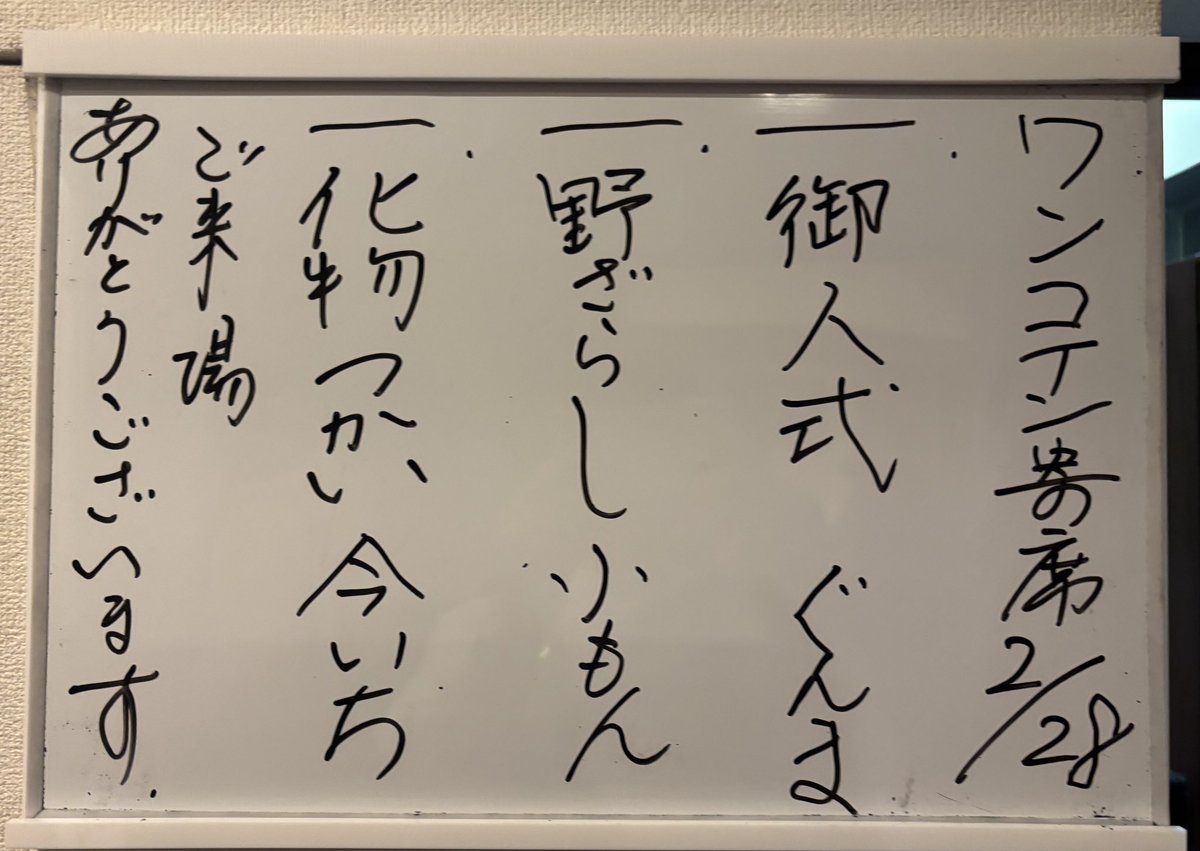 ワンコイン寄席2/28
一御人式 ぐんま
一野ざらし 小もん
一化物つかい 今いち
ご来場
ありがとうございます.